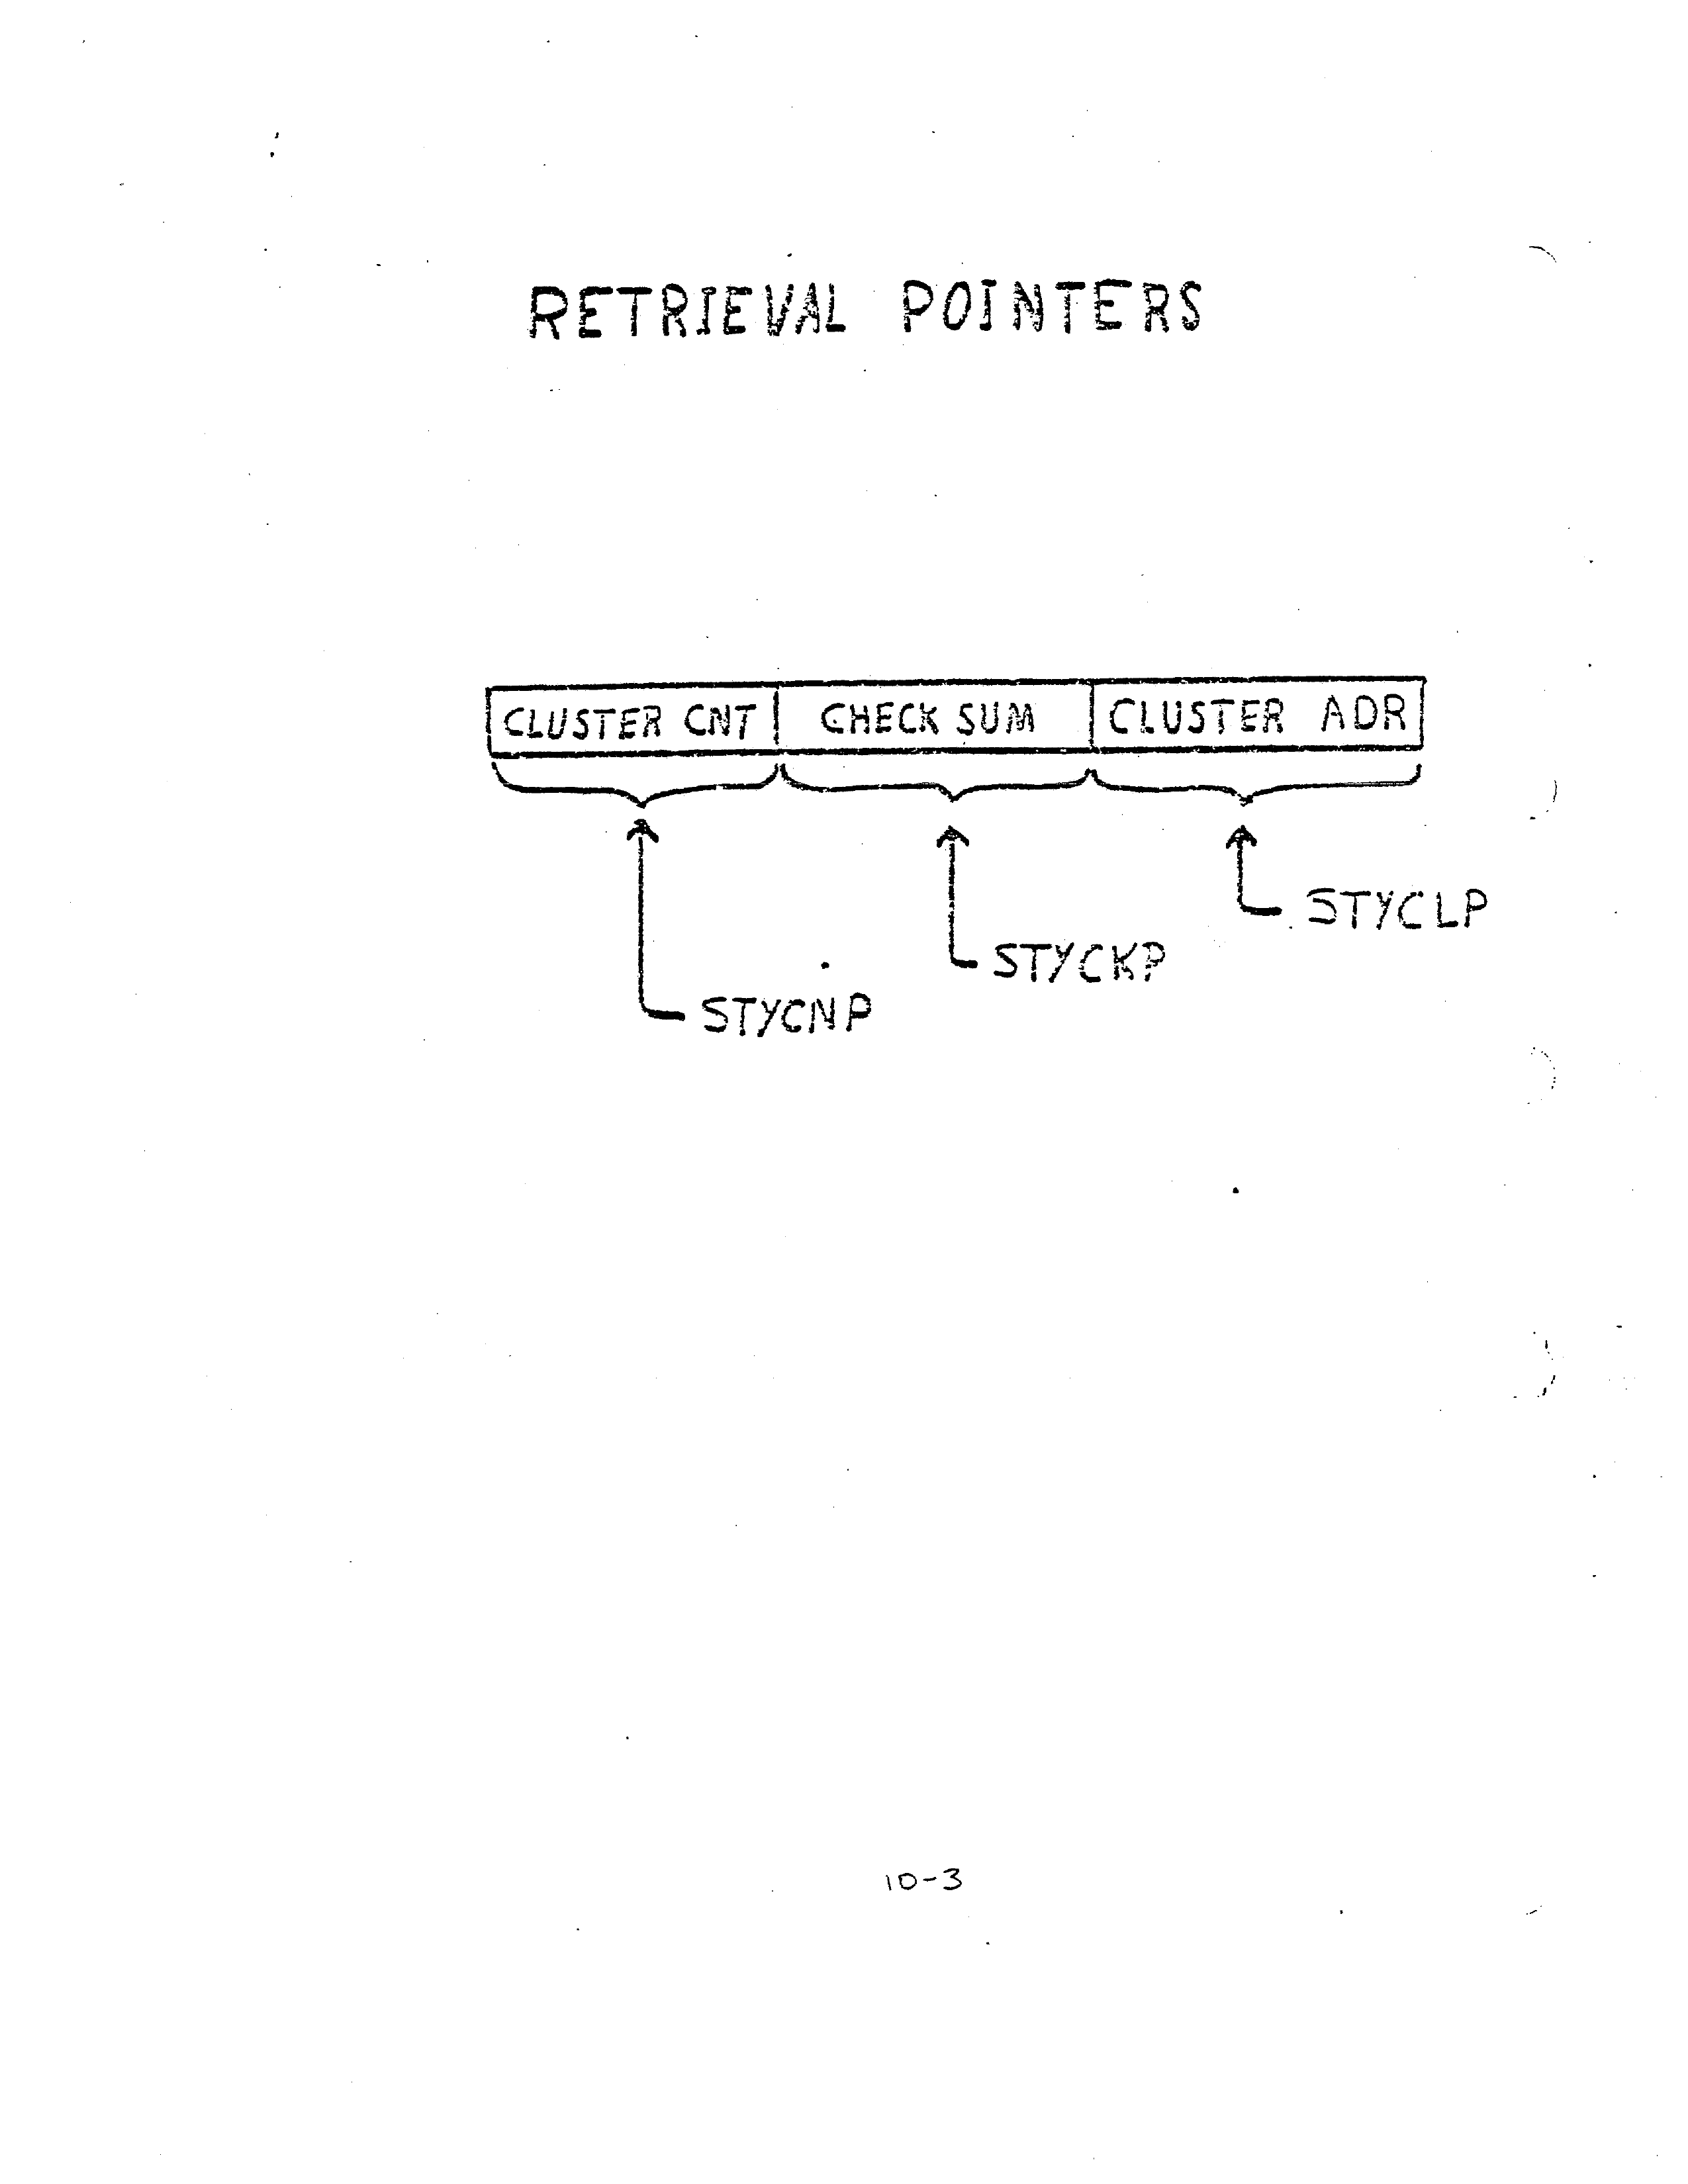 RETRIEVAL POINTERS
CLUSTER CNT CHECK SUM CLUSTER ADR
STYCLP
STYCKP
STYCNP
10-3